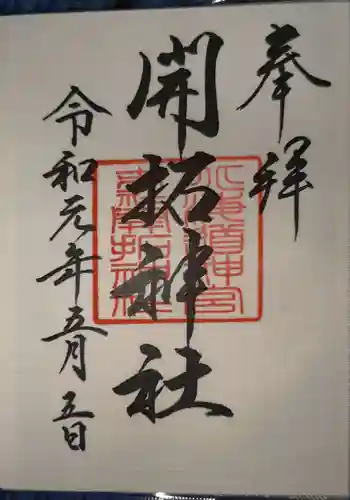 奉拝
開拓神社
令和元年五月五日
北海道神宮
末社開拓神社